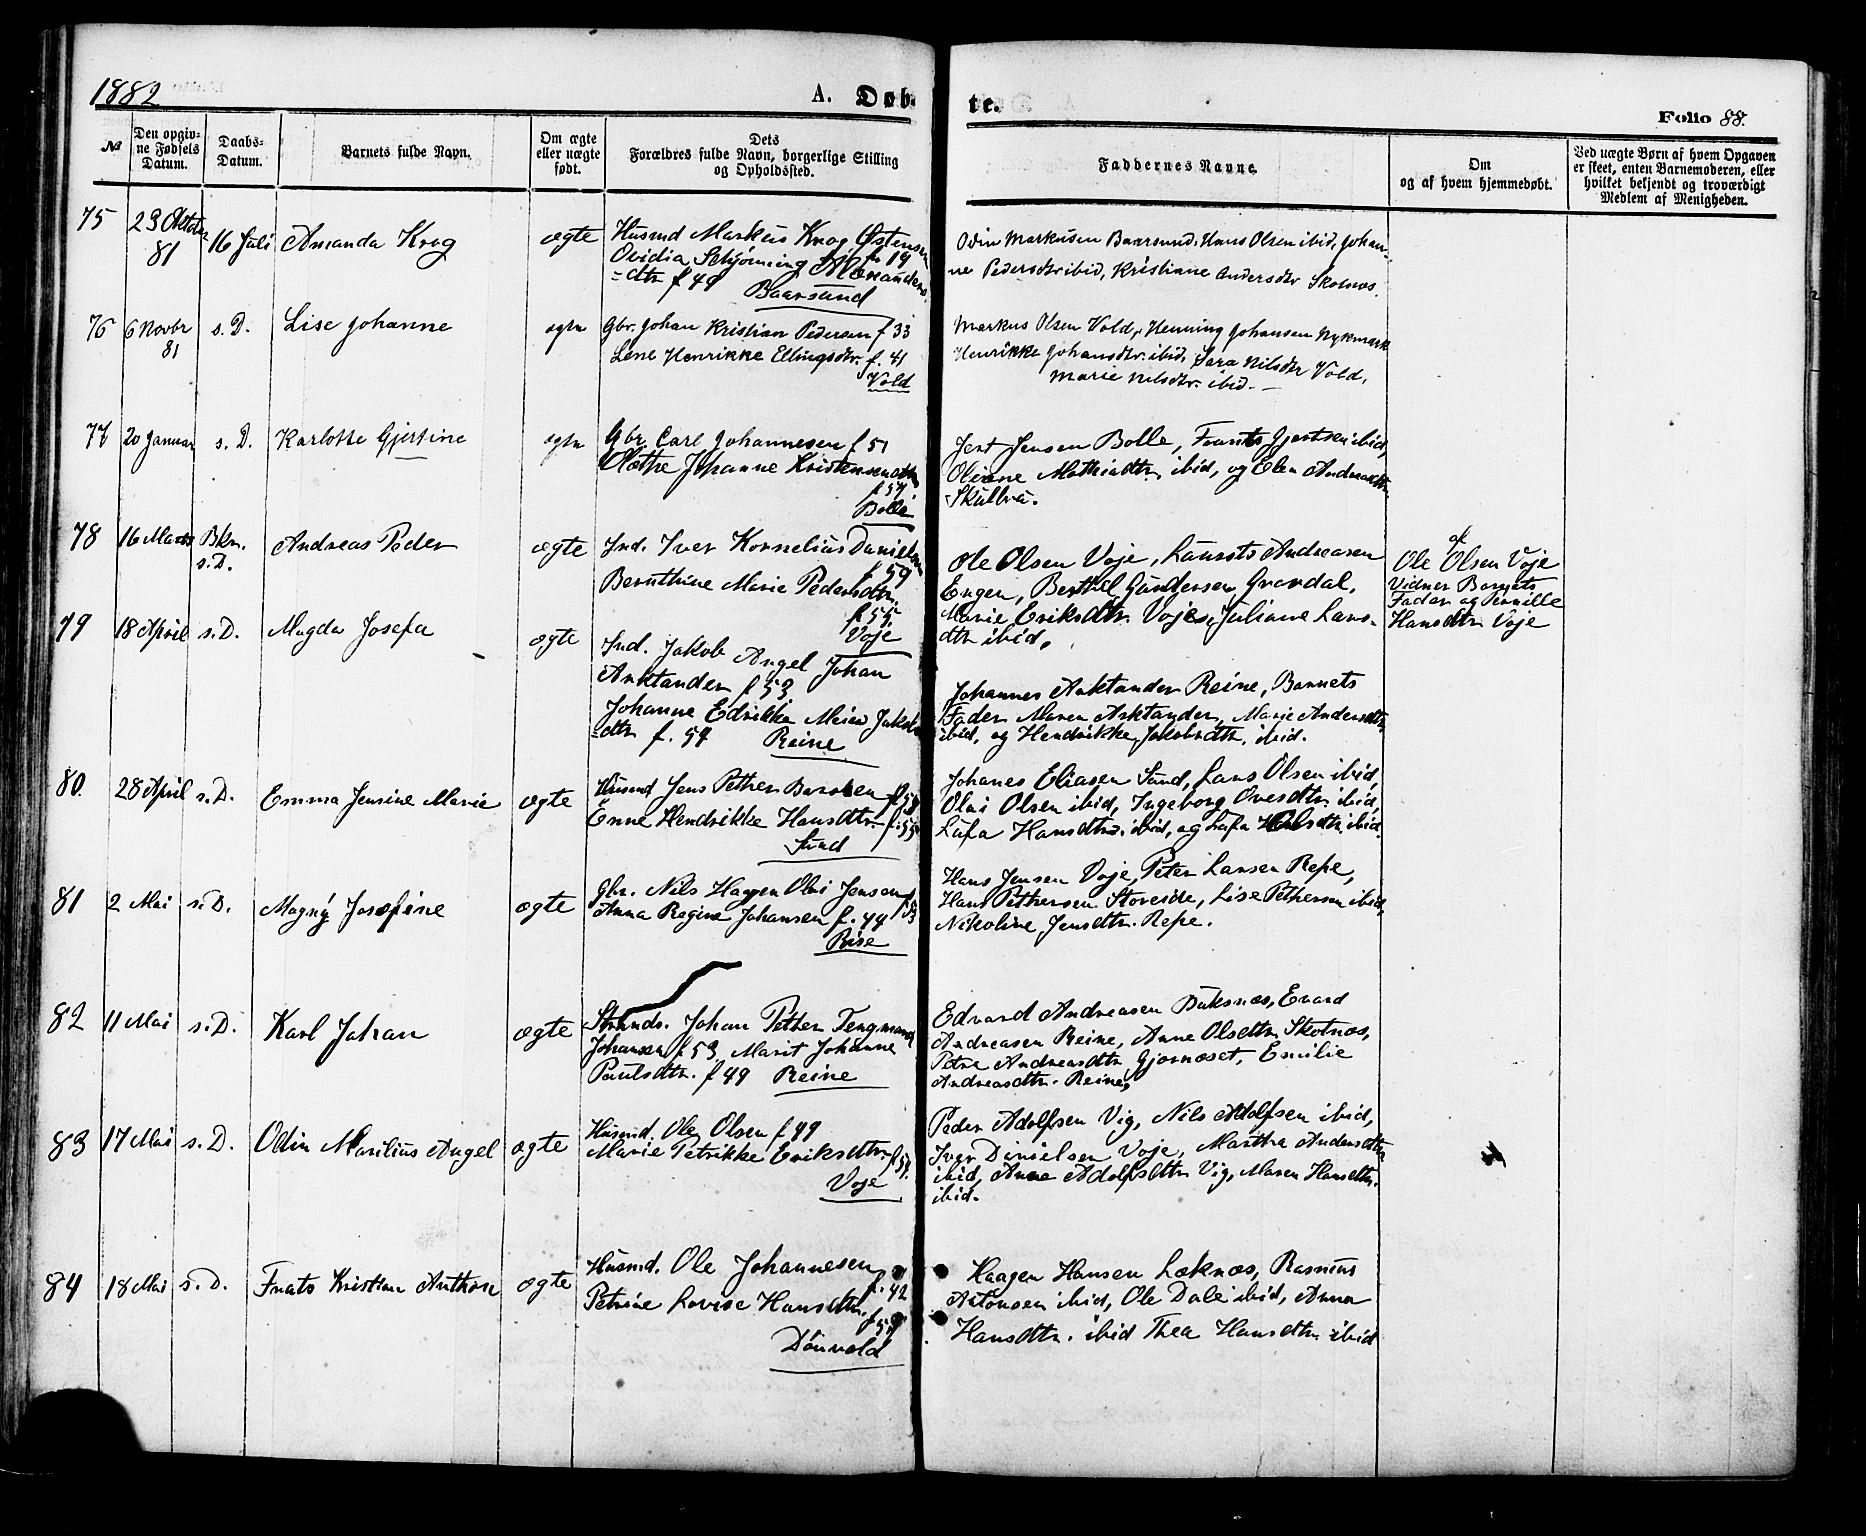 1882
A. Døb-
te.
Folio 88.
№
Den opgiv-
ne Fødsels
Datum.
Daabs-
Datum.
Barnets fulde Navn.
Om ægte
eller uægte
født.
Dets
Forældres fulde Navn, borgerlige Stilling
og Opholdssted.
Faddernes Navne.
Om
og af hvem hjemmedøbt.
Ved uægte Børn af hvem Opgaven
er skeet, enten Barnemoderen, eller
hvilket bekjendt og troværdigt
Medlem af Menigheden.
75
23 Oktober
81
16 Juli
Amanda Krog
ægte
Husmd Markus Krog Østensen
f. 19
Ovidia Schjønning Alexanders
=dtr f 49
Baarsund
Odin Markusen Baarsund, Hans Olsen ibid, Johan-
ne Pedersdtr ibid, Kristiane Andersdtr Skotnæs.
76
6 Novbr
81
s. D.
Lise Johanne
ægte
Gbr. Johan Kristian Pedersen f 33
Lene Henrikke Ellingsdtr. f. 41
Vold
Markus Olsen Vold, Henning Johansen Nykmark
Henrikke Johansdtr. ibid, Sara Nilsdtr Vold,
Marie Nilsdtr. ibid.
77
20 Januar
s. D.
Karlotte Gjertine
ægte
Gbr. Carl Johannesen f 51
Olethe Johanne Kristensendtr
f 57
Bolle
Jert Jensen Bolle, Frants Gjertsen ibid,
Oline Mathiadtr. ibid, og Elen Andreasdtr
Skulbru.
78
16 Marts
Bkn.
s. D.
Andreas Peder
ægte
Ind. Iver Kornelius Danielsen
f 59
Bernthine Marie Pedersdtr.
f 55
Voje
Ole Olsen Voje, Laurits Andreasen
Engen, Berthel Gundersen Grandal,
Marie Eriksdtr. Voje, Juliane Lars-
dtr ibid.
af
Ole Olsen Voje
Vidner Barnets
Fader og Pernille
Hansdtr. Voje
79
18 April
s. D.
Magda Josefa
ægte
Ind. Jakob Angel Johan
Arktander f 53
Johanne Edrikke Meier Jakobs
=dtr f. 57 Reine
Johannes Arktander Reine, Barnets
Fader, Maren Arktander, Marie Andersdtr.
ibid, og Hendrikke Jakobsdtr. ibid.
80.
28 April
s. D.
Emma Jensine Marie
ægte
Husmd Jens Pether f 58
Enne Hendrikke Hansdtr. f. 55
Sund
Johanes Eliasen Sund, Lars Olsen ibid,
Olai Olsen ibid, Ingeborg Ovesdtr. ibid,
Lafa Hansdtr. ibid, og Lafa ibid.
81
2 Mai
s. D.
Magny Josefine
ægte
Gbr. Nils Hagen Olai Jensen f 53
Anna Regine Johansen f. 44
Rise
Hans Jensen Voje, Peter Larsen Repe,
Hans Pethersen Storeide, Lise Pethersen ibid,
Nikoline Jensdtr. Repe.
82
11 Mai
s. D.
Karl Johan
ægte
Strands. Johan Pether Tengmand
Johansen f 53 Marit Johanne
Paulsdtr. f 49 Reine
Edvard Andreasen Buksnæs, Evard
Andreasen Reine, Anne Olsdtr. Skotnæs,
Petra Andreasdtr. Gjerneset, Emilie
Andreasdtr. Reine,
83
17 Mai
s. D.
Odin Marilius Angel
ægte
Husmd. Ole Olsen f 49
Marie Petrikke Eriksdtr. f 57.
Voje
Peder Adolfsen Vig, Nils Adolfsen ibid,
Iver Danielsen Voje, Martha Andersdtr.
ibid, Anne Adolfsdtr. Vig, Maren Hansdtr.
ibid.
84
18 Mai
s. D.
Frats Kristian Anthon
ægte
Husmd. Ole Johannesen
f. 42
Petrine Lovise Hansdtr.
f 57
Dønvold
Haagen Hansen Læknæs, Rasmus
Antonsen ibid, Ole Dale ibid, Anna
Hansdtr. ibid Thea Hansdtr. ibid